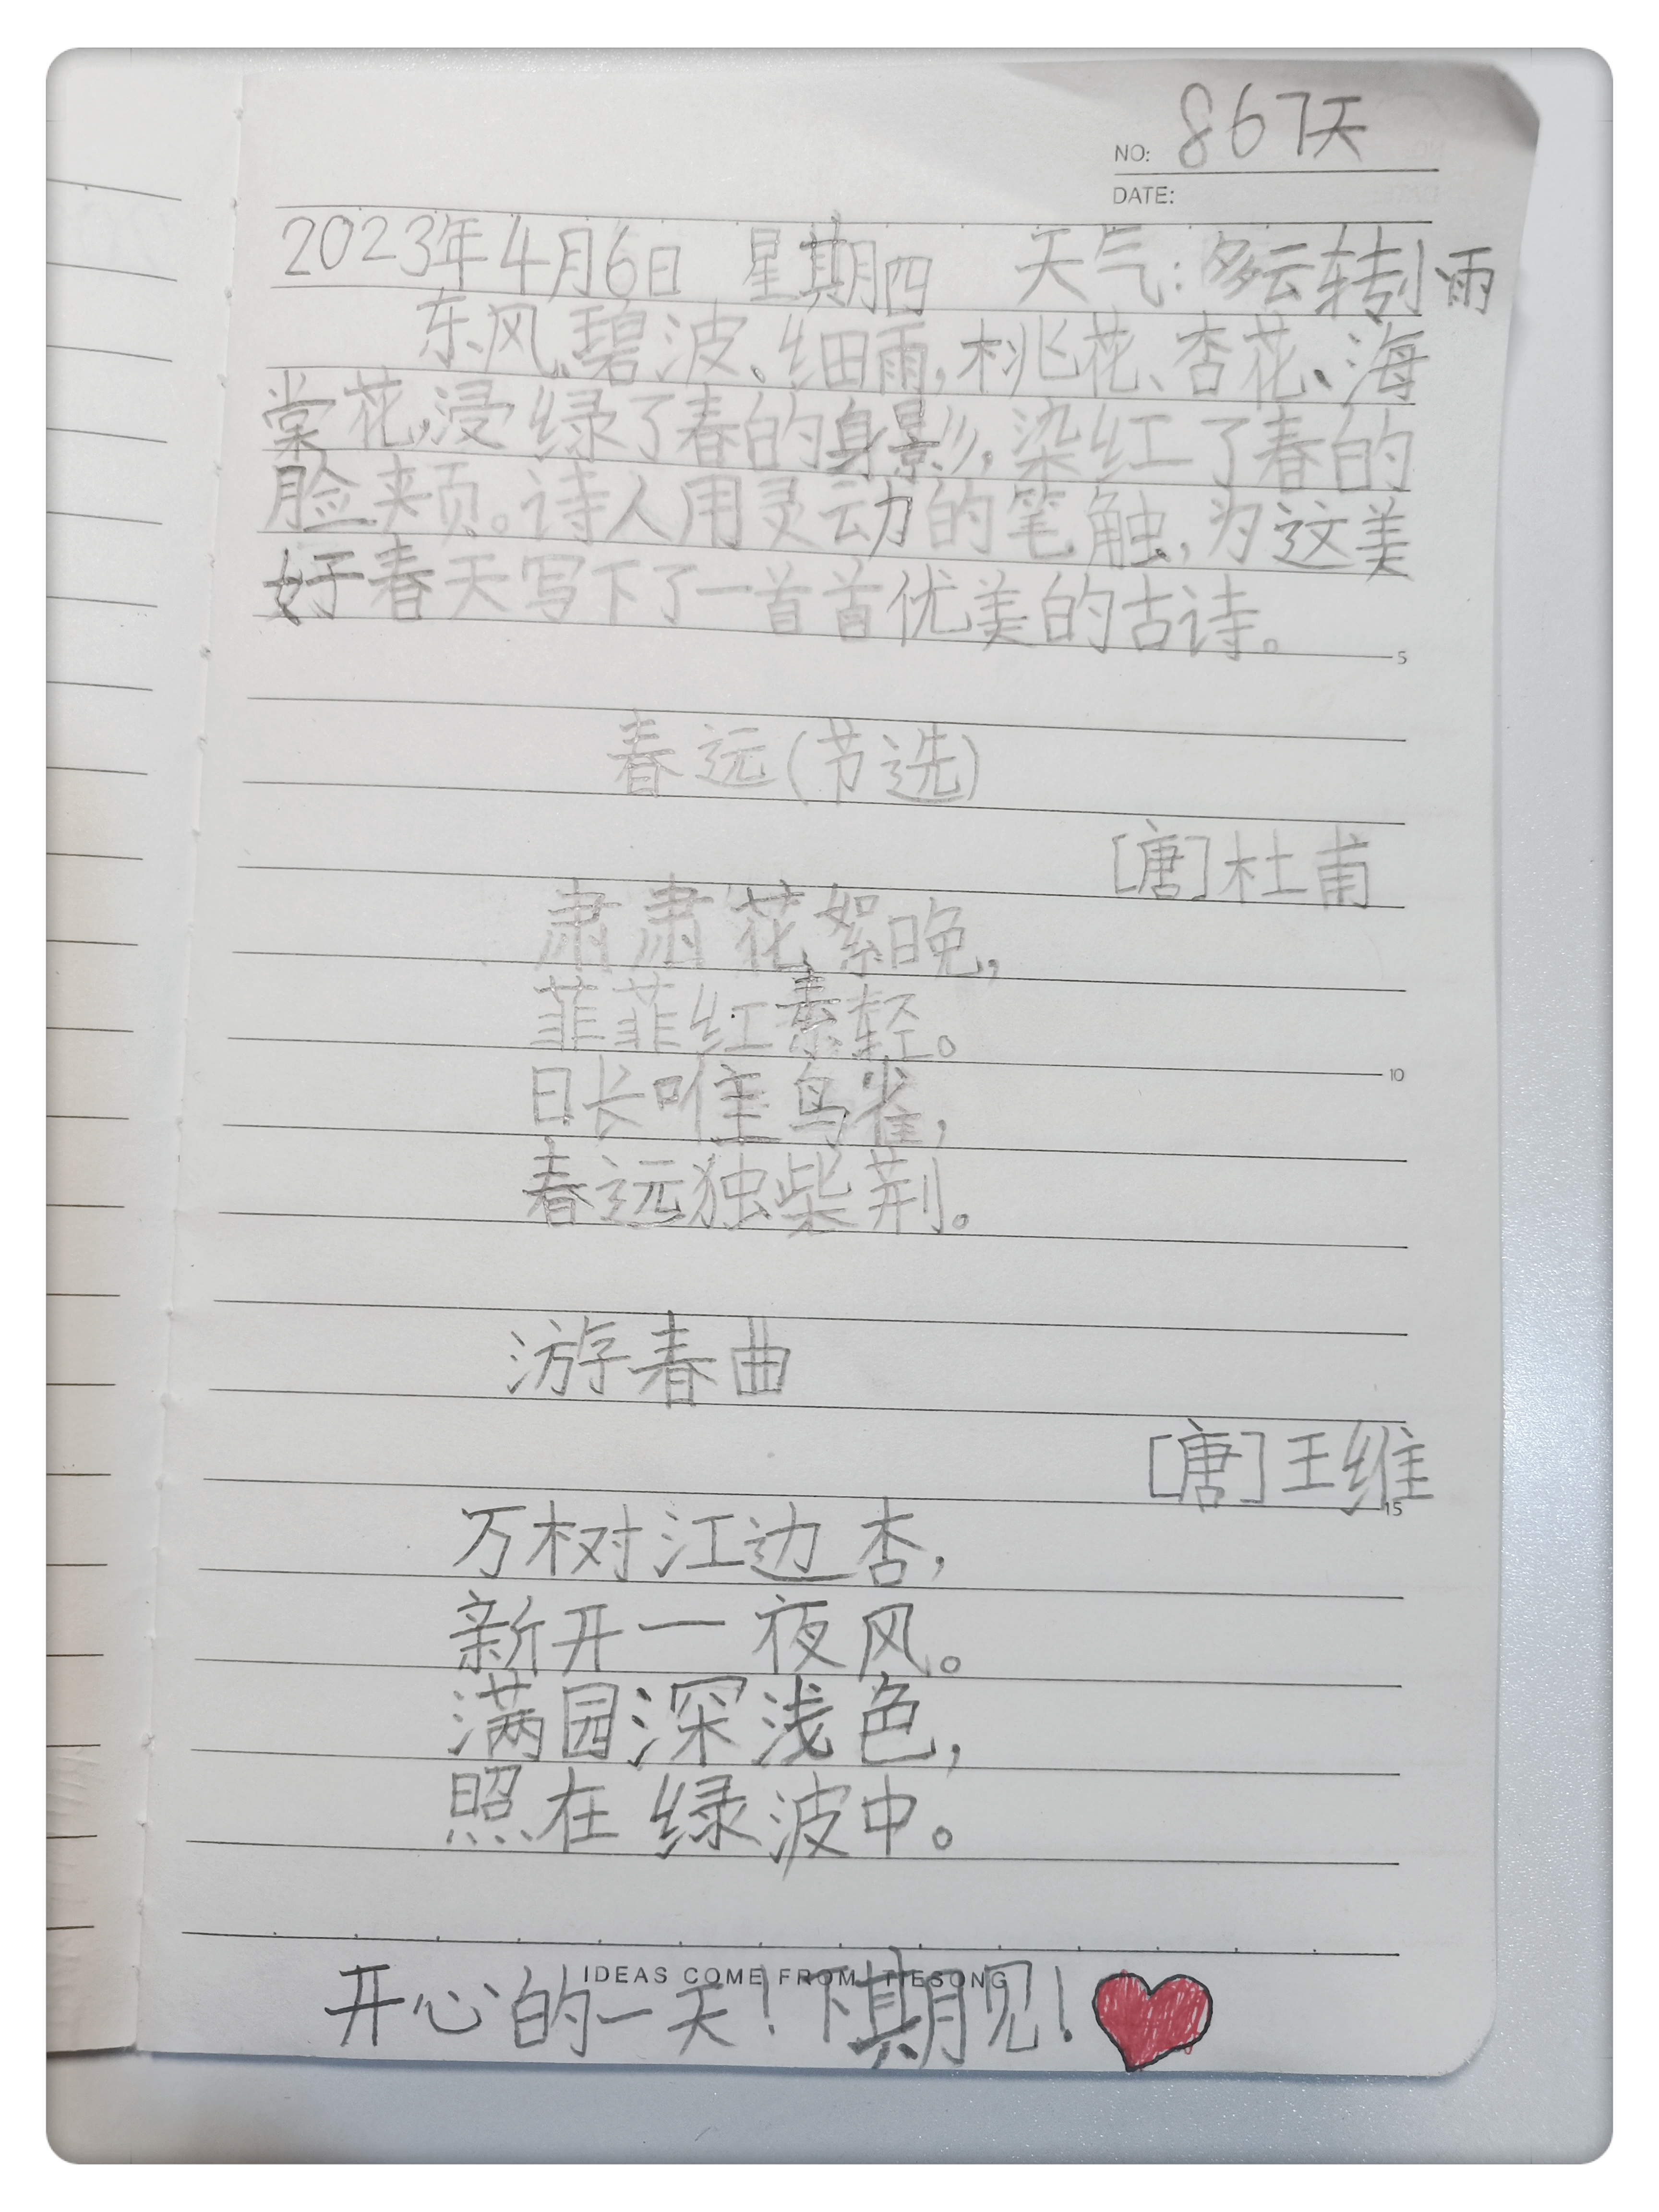 NO: 867天
DATE:
2023年4月6日 星期四 天气:多云转小雨
东风、碧波、细雨,桃花、杏花、海
棠花,浸绿了春的身影,染红了春的
脸夹页。诗人用灵动的笔触,为这美
好春天写下了一首首优美的古诗。
5
春远(节选)
[唐]杜甫
肃肃花絮晚,
菲菲红素轻。
10
日长唯鸟雀,
春远独柴荆。
游春曲
[唐]王维
15
万树江边杏,
新开一夜风。
满园深浅色,
照在绿波中。
IDEAS COME FROM TIESONG
开心的一天!下期见!